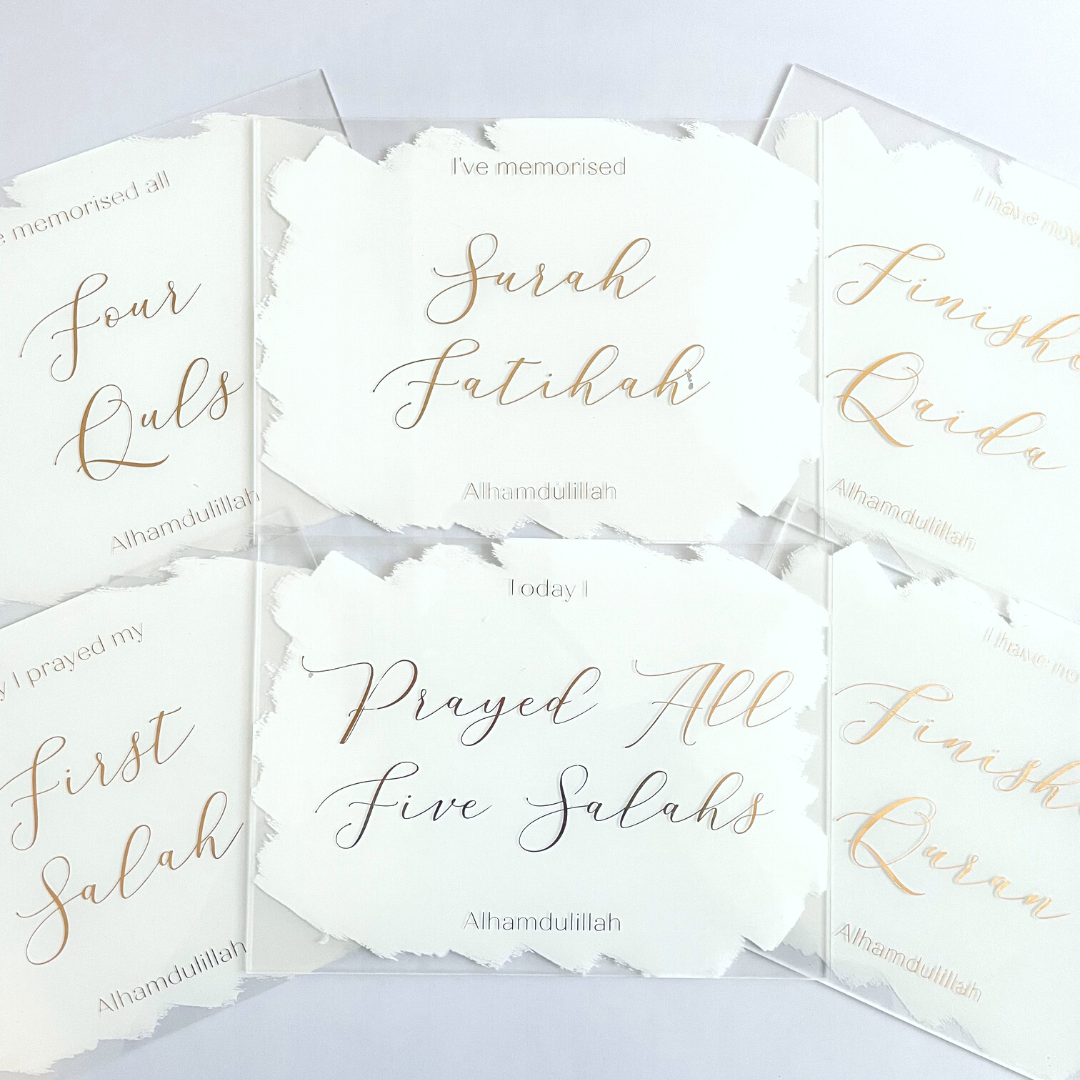 memorised all
Four
Quls
Alhamdulillah
I've memorised
Surah
Fatihah
Alhamdulillah
I have now
Finishe
Qaida
Alhamdulillah
y I prayed my
First
Salah
Alhamdulillah
Today I
Prayed All
Five Salahs
Alhamdulillah
I have no
Finish
Quran
Alhamdulillah